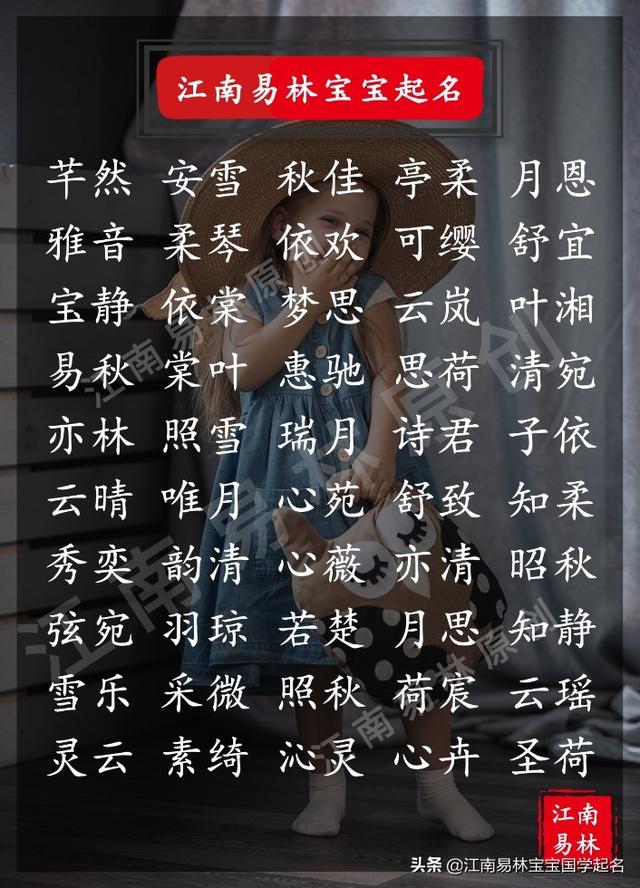 江南易林宝宝起名
芊然 安雪 秋佳 亭柔 月恩
雅音 柔琴 依欢 可缨 舒宜
宝静 依棠 梦思 云岚 叶湘
易秋 棠叶 惠驰 思荷 清宛
亦林 照雪 瑞月 诗君 子依
云晴 唯月 心苑 舒致 知柔
秀奕 韵清 心薇 亦清 昭秋
弦宛 羽琼 若楚 月思 知静
雪乐 采微 照秋 荷宸 云瑶
灵云 素绮 沁灵 心卉 圣荷
江南易林原创
江南易林原创
江南易林原创
江南
易林
头条 @江南易林宝宝国学起名